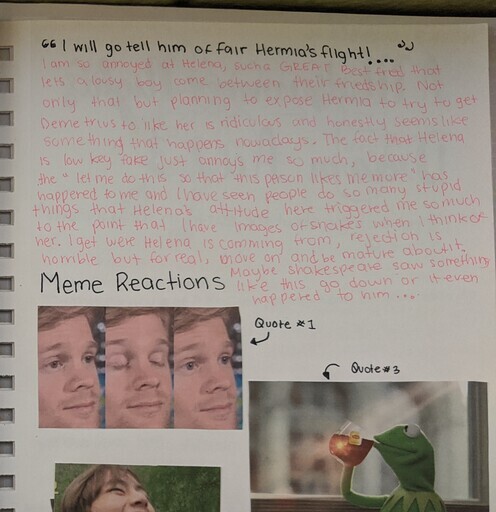 “ I will go tell him of fair Hermia's flight!.... ”
I am so annoyed at Helena, such a GREAT Best fred that
lets a lousy boy come between their friedship. Not
only that but planning to expose Hermia to try to get
Demetrius to like her is ridiculous and honestly seems like
something that happens nowadays. The fact that Helena
is low key fake just annoys me so much, because
the " let me do this so that this person likes me more" has
happened to me and I have seen people do so many stupid
things that Helena's attitude here triggered me so much
to the point that I have images of snakes when I think of
her. I get were Helena is comming from, rejection is
horrible but for real, move on and be mature about it.
Maybe shakespeare saw something
like this go down or it even
happened to him ...
Meme Reactions
Quote #1
Quote #3